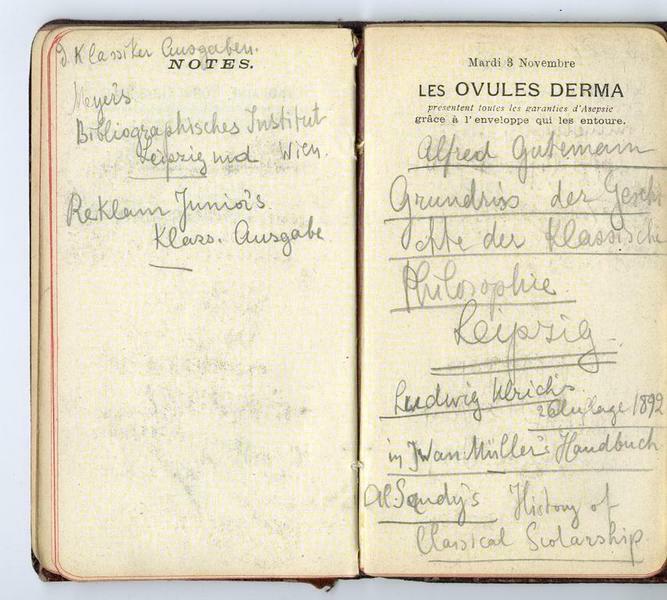 D. Klassiker Ausgaben.
NOTES.
Meyer's
Bibliographisches Institut
Leipzig und Wien.
Reklam Junior's
Klass. Ausgabe
Mardi 3 Novembre
LES OVULES DERMA
présentent toutes les garanties d'Asepsie
grâce à l'enveloppe qui les entoure.
Alfred Gutemann
Grundriss der Geschi
chte der Klassische
Philosophie.
Leipzig.
Ludwig Ulrichs.
2 Auflage 1892
in Iwan Müller's Handbuch
Al Sandy's History of
Classical Scolarship.